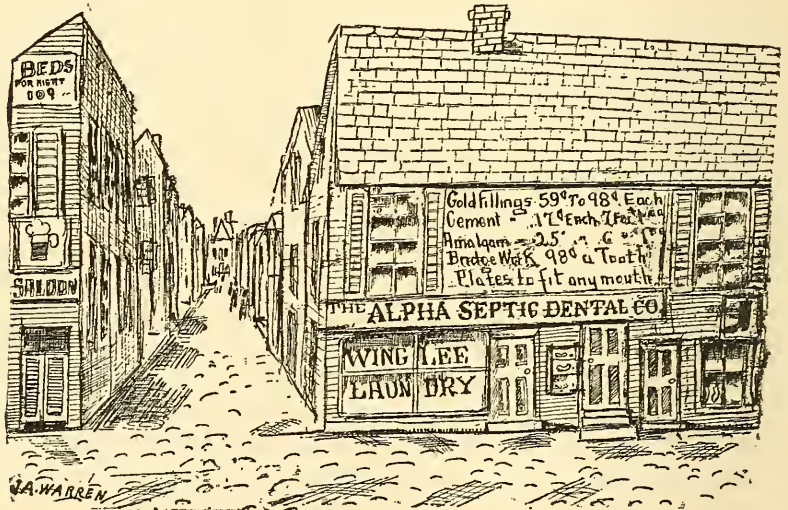 BEDS
FOR NIGHT
10¢
SALOON
Gold fillings 59¢ To 98¢ Each
Cement " 17¢ Each, 7 For
Amalgam " 25 " 6 "
Bridge Work 98¢ a Tooth
Plates to fit any mouth
THE ALPHA SEPTIC DENTAL CO.
WING LEE
LAUNDRY
J.A. WARREN